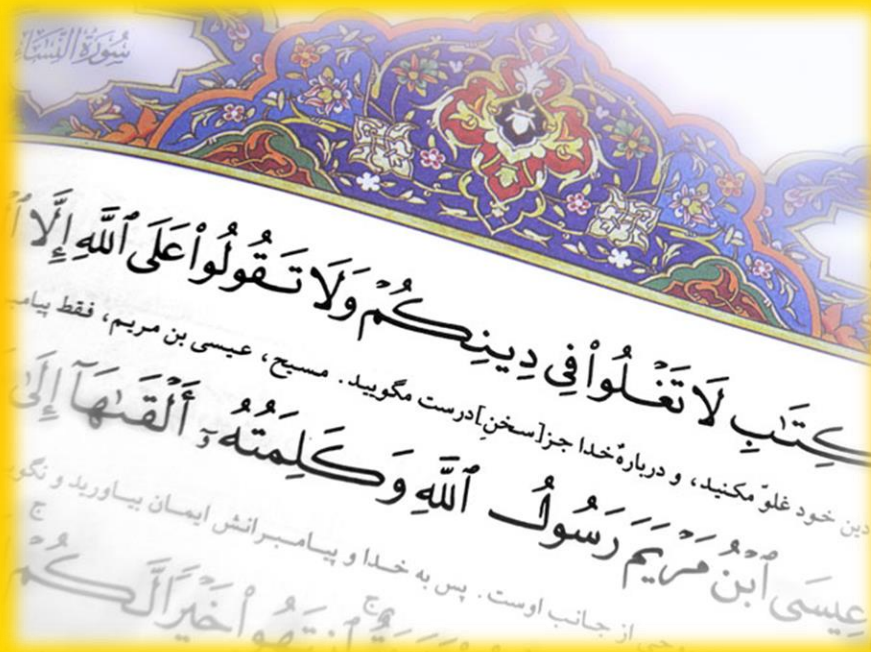 سُورَةُ النِّسَاءِ
لَا تَغْلُواْ فِي دِينِكُمْ وَلَا تَقُولُواْ عَلَى ٱللَّهِ إِلَّا
دین خود غلوّ مکنید، و دربارهٔ خدا جز [سخنِ] درست مگویید. مسیح، عیسی بن مریم، فقط
عِيسَى ٱبْنُ مَرْيَمَ رَسُولُ ٱللَّهِ وَكَلِمَتُهُۥٓ أَلْقَىٰهَآ إِلَىٰ
از جانب اوست. پس به خدا و پیامبرانش ایمان بیاورید و
خَيْرًا لَّكُمْ